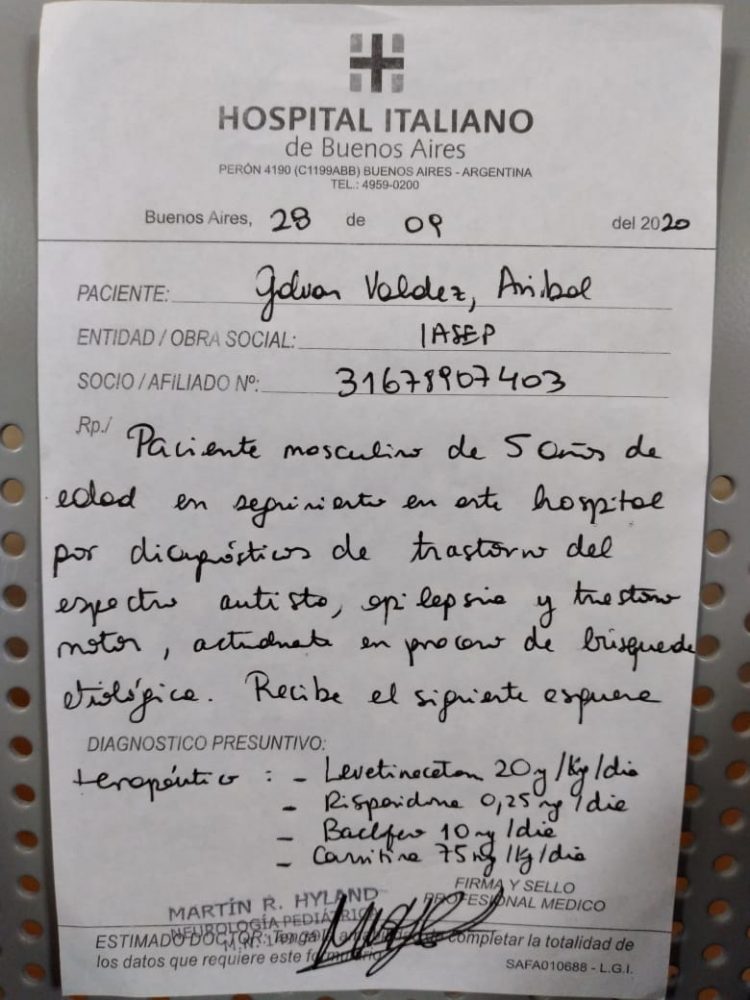 HOSPITAL ITALIANO
de Buenos Aires
PERÓN 4190 (C1199ABB) BUENOS AIRES - ARGENTINA
TEL.: 4959-0200
Buenos Aires, 28 de 09 del 2020
PACIENTE: Galvan Valdez, Anibal
ENTIDAD / OBRA SOCIAL: IASEP
SOCIO / AFILIADO Nº: 31678907403
Rp./ Paciente masculino de 5 años de
edad en seguimiento en este hospital
por diagnósticos de trastorno del
espectro autista, epilepsia y trastorno
motor, actualmente en proceso de búsqueda
etiológica. Recibe el siguiente esquema
DIAGNOSTICO PRESUNTIVO:
terapéutico : - Levetiracetam 20 /Kg/dia
- Risperidona 0,25 mg /dia
- Baclofeno 10 mg /dia
- Carnitina 75 mg /Kg/dia
FIRMA Y SELLO
PROFESIONAL MEDICO
MARTÍN R. HYLAND
NEUROLOGÍA PEDIÁTRICA
M.N.
ESTIMADO DOCTOR: Tenga completar la totalidad de
los datos que requiere este formulario
SAFA010688 - L.G.I.